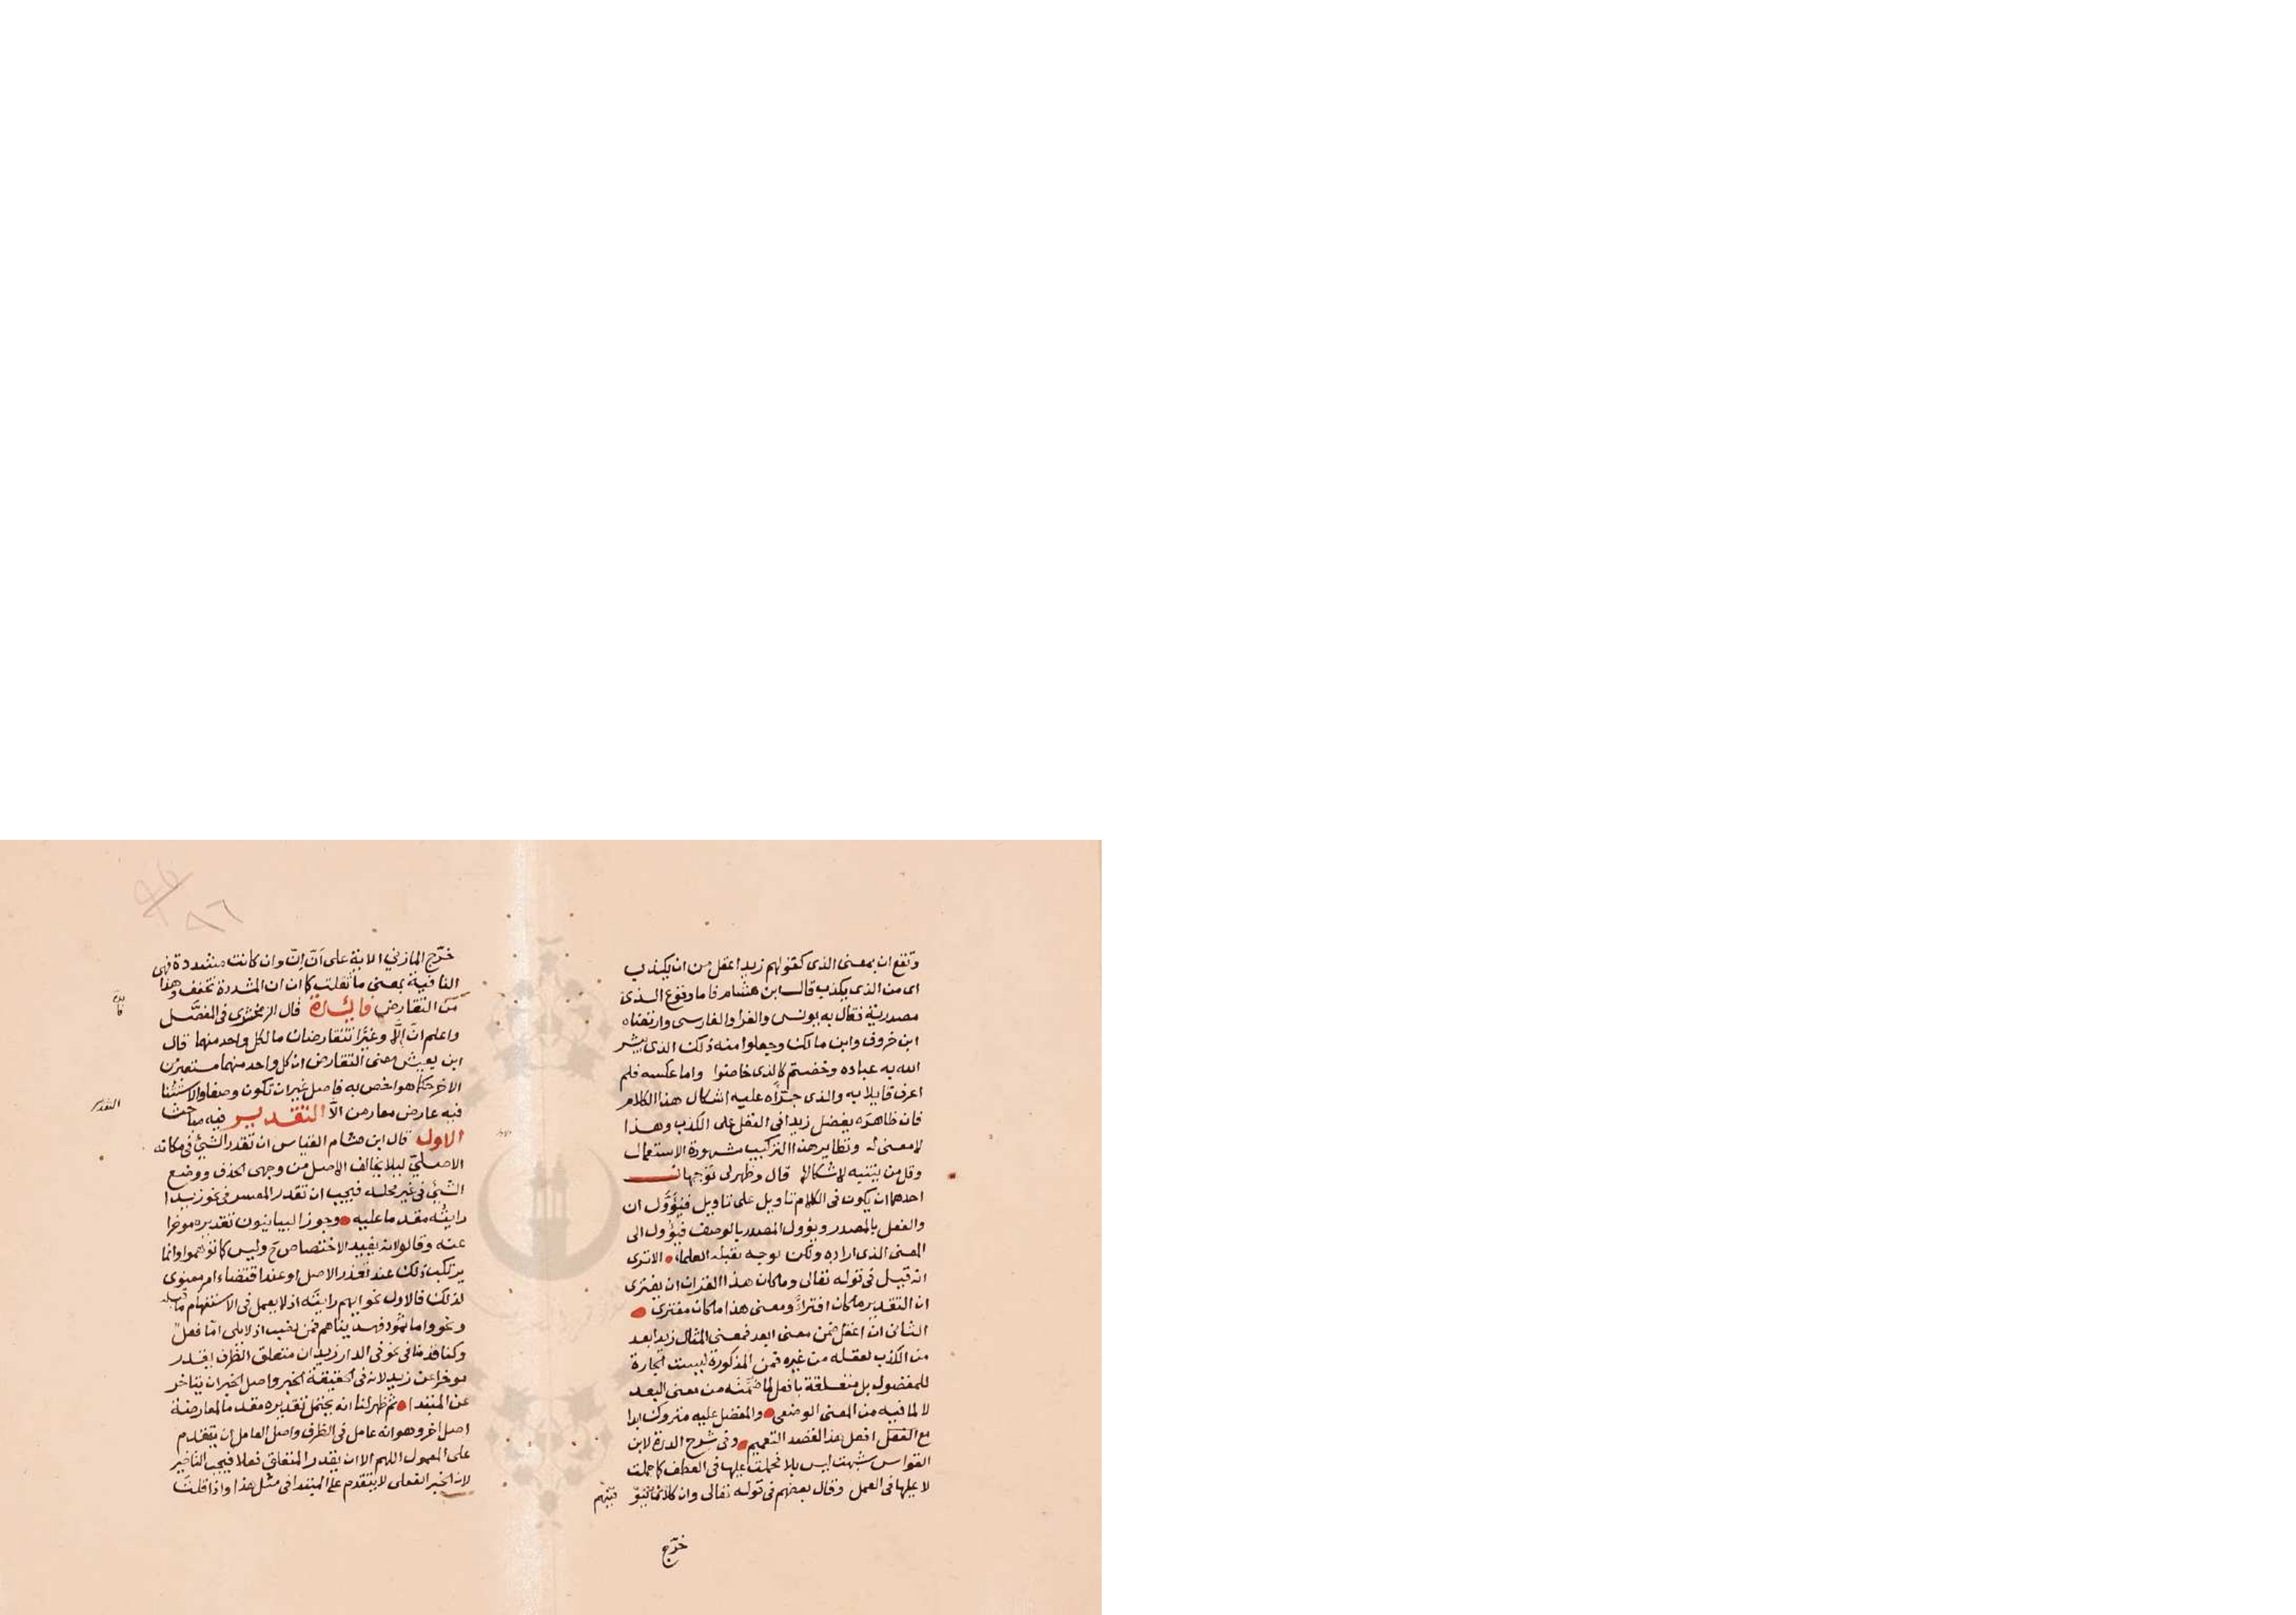 وتقع ان بمعنى الذى كقولهم زيد اعقل من ان يكذب
اى من الذى يكذب قال ابن هشام فاما وقوع الذى
مصدرية فقال به يونس والفرا والفارسى وارتضاه
ابن خروف وابن مالك وجعلوا منه ذلك الذى يبشر
الله به عباده وخضتم كالذى خاضوا واما عكسه فلم
اعرف قايلا به والذى جرّاه عليه اشكال هذا الكلام
فان ظاهره يفضل زيدا فى العقل على الكذب وهذا
لا معنى له ونظاير هذا التركيب مشهورة الاستعمال
وقل من يتنبه لاشكالها قال وظهر لى توجيهان
احدهما ان يكون فى الكلام تاويل على تاويل فيؤوّل ان
والفعل بالمصدر ويؤول المصدر بالوصف فيؤول الى
المعنى الذى اراده ولكن بوجه يقبله العلماء الا ترى
انه قيل فى قوله تعالى وما كان هذا القران ان يفترى
ان التقدير ما كان افتراءً ومعنى هذا ما كان مفترى
الثانى ان اعقل ضمن معنى ابعد فمعنى المثال زيد ابعد
من الكذب لعقله من غيره فمن المذكورة ليست الجارة
للمفضول بل متعلقة بافعل لما ضمنه من معنى البعد
لا لما فيه من المعنى الوضعى والمفضل عليه متروك ابدا
مع افعل هذا لقصد التعميم وفى شرح الدرة لابن
القواس شبهت ليس بلا فحملت عليها فى العطف كما حملت
لا عليها فى العمل وقال بعضهم فى قوله تعالى وان كلا لما ليوفّينّهم
خرّج
خرّج المازنى الاية على انّ إنّ وان كانت مشددة فهى
النافية بمعنى ما ثقلت كما ان ان المشددة تخفف وهذا
من التقارض فائدة قال الزمخشرى فى المفصّل
واعلم انّ إلّا وغيرًا تتقارضان ما لكل واحد منهما قال
ابن يعيش معنى التقارض ان كل واحد منهما يستعير من
الاخر حكما هو اخص به فاصل غير ان تكون وصفا والاستثنا
فيه عارض معار من الّا التقدير فيه مباحث
التقدير
الاول قال ابن هشام القياس ان تقدر الشئ فى مكانه
الاصلىّ ليلا يخالف الاصل من وجهى الحذف ووضع
الشئ فى غير محله فيجب ان تقدر المفسر فى نحو زيدا
رايته مقدما عليه وجوز البيانيون تقديره موخرا
عنه وقالوا لانه يفيد الاختصاص ح وليس كما توهموا وانما
يرتكب ذلك عند تعذر الاصل او عند اقتضاء امر معنوى
لذلك فالاول نحو ايهم رايته اذ لا يعمل فى الاستفهام ما قبله
ونحو واما ثمود فهديناهم فمن نصب اذ لا يلى امّا فعل
وكنا قدمنا فى نحو فى الدار زيد ان متعلق الظرف يقدر
موخرا عن زيد لانه فى الحقيقة الخبر واصل الخبر ان يتاخر
عن المبتدا ثم ظهر لنا انه يحتمل تقديره مقدما لمعارضة
اصل اخر وهو انه عامل فى الظرف واصل العامل ان يتقدم
على المعمول اللهم الا ان يقدر المتعلق فعلا فيجب التاخير
لان الخبر الفعلى لا يتقدم على المبتدا فى مثل هذا واذا قلت